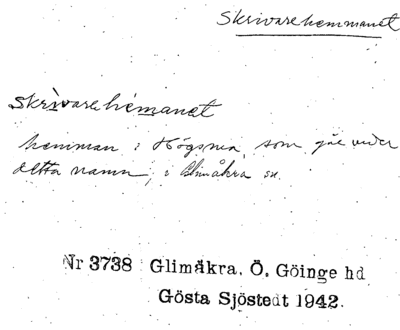 Skrivarehemmanet
skrìvarehémanet
hemman i Högsma, som går under
detta namn, i Glimåkra sn.
Nr 3738 Glimåkra. Ö. Göinge hd
Gösta Sjöstedt 1942.